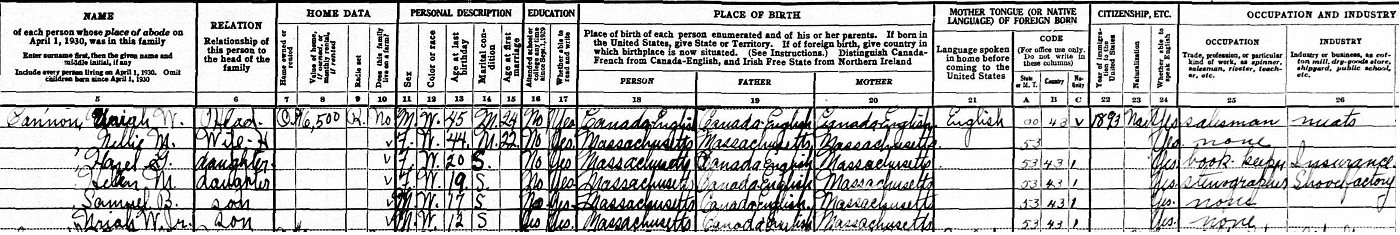 NAME RELATION HOME DATA PERSONAL DESCRIPTION EDUCATION PLACE OF BIRTH MOTHER TONGUE (OR NATIVE LANGUAGE) OF FOREIGN BORN CITIZENSHIP, ETC. OCCUPATION AND INDUSTRY
of each person whose place of abode on April 1, 1930, was in this family
Enter surname first, then the given name and middle initial, if any
Include every person living on April 1, 1930. Omit children born since April 1, 1930
Relationship of this person to the head of the family
Home owned or rented
Value of home, if owned, or monthly rental, if rented
Radio set
Does this family live on a farm
Sex
Color or race
Age at last birthday
Marital condition
Age at first marriage
Attended school or college any time since Sept. 1, 1929
Whether able to read and write
Place of birth of each person enumerated and of his or her parents. If born in the United States, give State or Territory. If of foreign birth, give country in which birthplace is now situated. (See Instructions.) Distinguish Canada-French from Canada-English, and Irish Free State from Northern Ireland
PERSON FATHER MOTHER
Language spoken in home before coming to the United States
CODE
(For office use only. Do not write in these columns)
State or M. T. Country Nativity
Year of immigration to the United States
Naturalization
Whether able to speak English
OCCUPATION
Trade, profession, or particular kind of work, as spinner, salesman, riveter, teacher, etc.
INDUSTRY
Industry or business, as cotton mill, dry-goods store, shipyard, public school, etc.
5 6 7 8 9 10 11 12 13 14 15 16 17 18 19 20 21 A B C 22 23 24 25 26
Cannon, Uriah W. Head O 6,500 R No M W 45 M 24 No Yes Canada-English Canada-English Canada-English English 00 43 V 1893 Na Yes salesman meats
, Nellie M. Wife-H V F W 44 M 22 No Yes Massachusetts Massachusetts Massachusetts 53 Yes none
, Hazel daughter V F W 20 S No Yes Massachusetts Canada English Massachusetts 53 43 1 Yes book-keeper Insurance
, Helen M. daughter V F W 19 S No Yes Massachusetts Canada English Massachusetts 53 43 1 Yes stenographer Shoe factory
, Samuel B. son V M W 17 S Yes Massachusetts Canada English Massachusetts 53 43 1 Yes none
, Uriah W. Jr. son V M W 12 S Yes Yes Massachusetts Canada English Massachusetts 53 43 1 Yes none